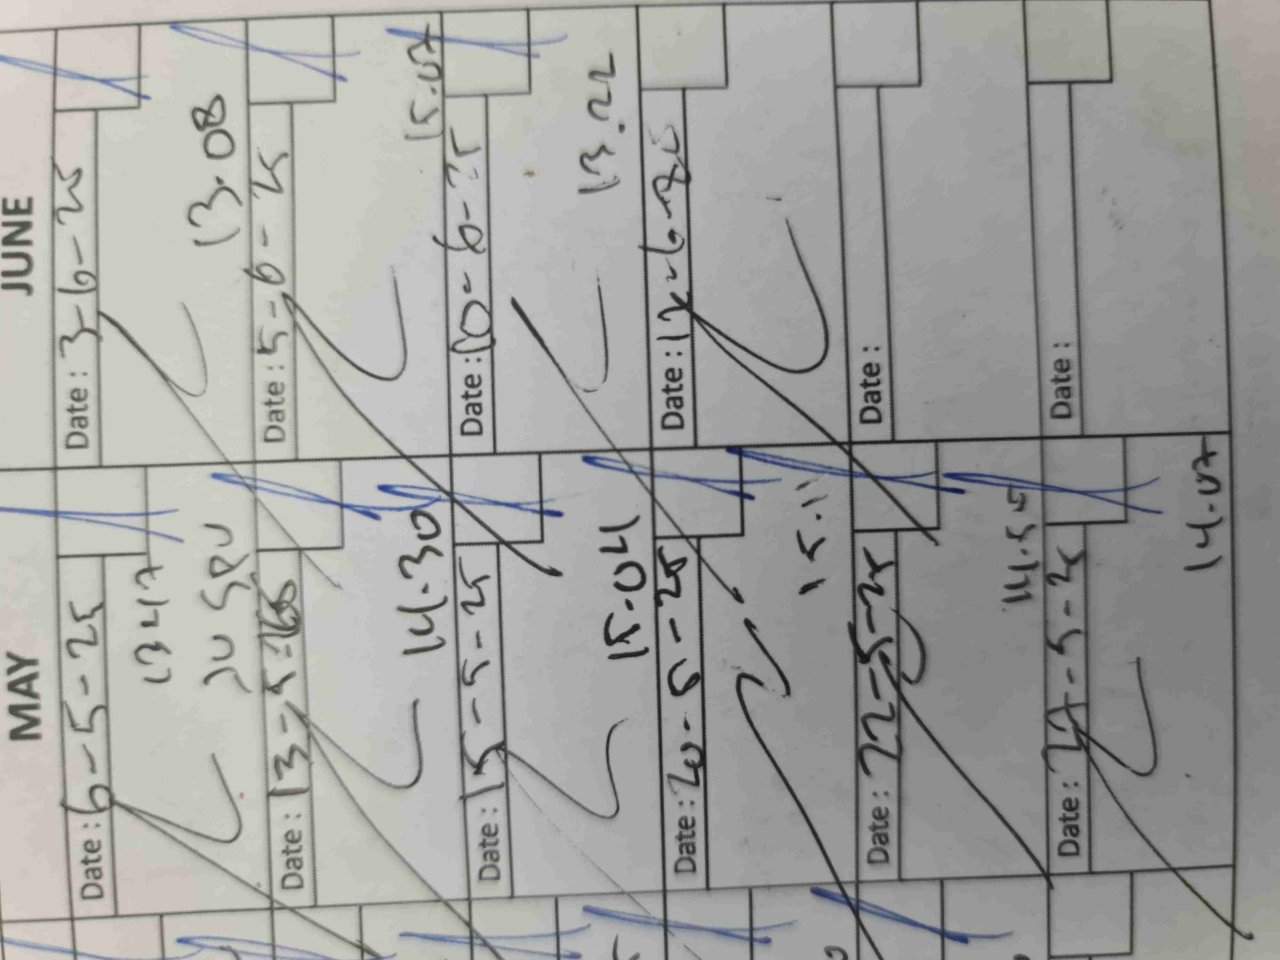 MAY
Date: 6-5-25
13 47
Date: 13-5-
14.30
Date: 15-5-25
15.04
Date: 20-5-25
15.11
Date: 22-5-25
14.55
Date: 27-5-25
14.07
JUNE
Date: 3-6-25
13.08
Date: 5-6-25
15.07
Date: 10-6-25
13.22
Date: 12-6-
Date:
Date: